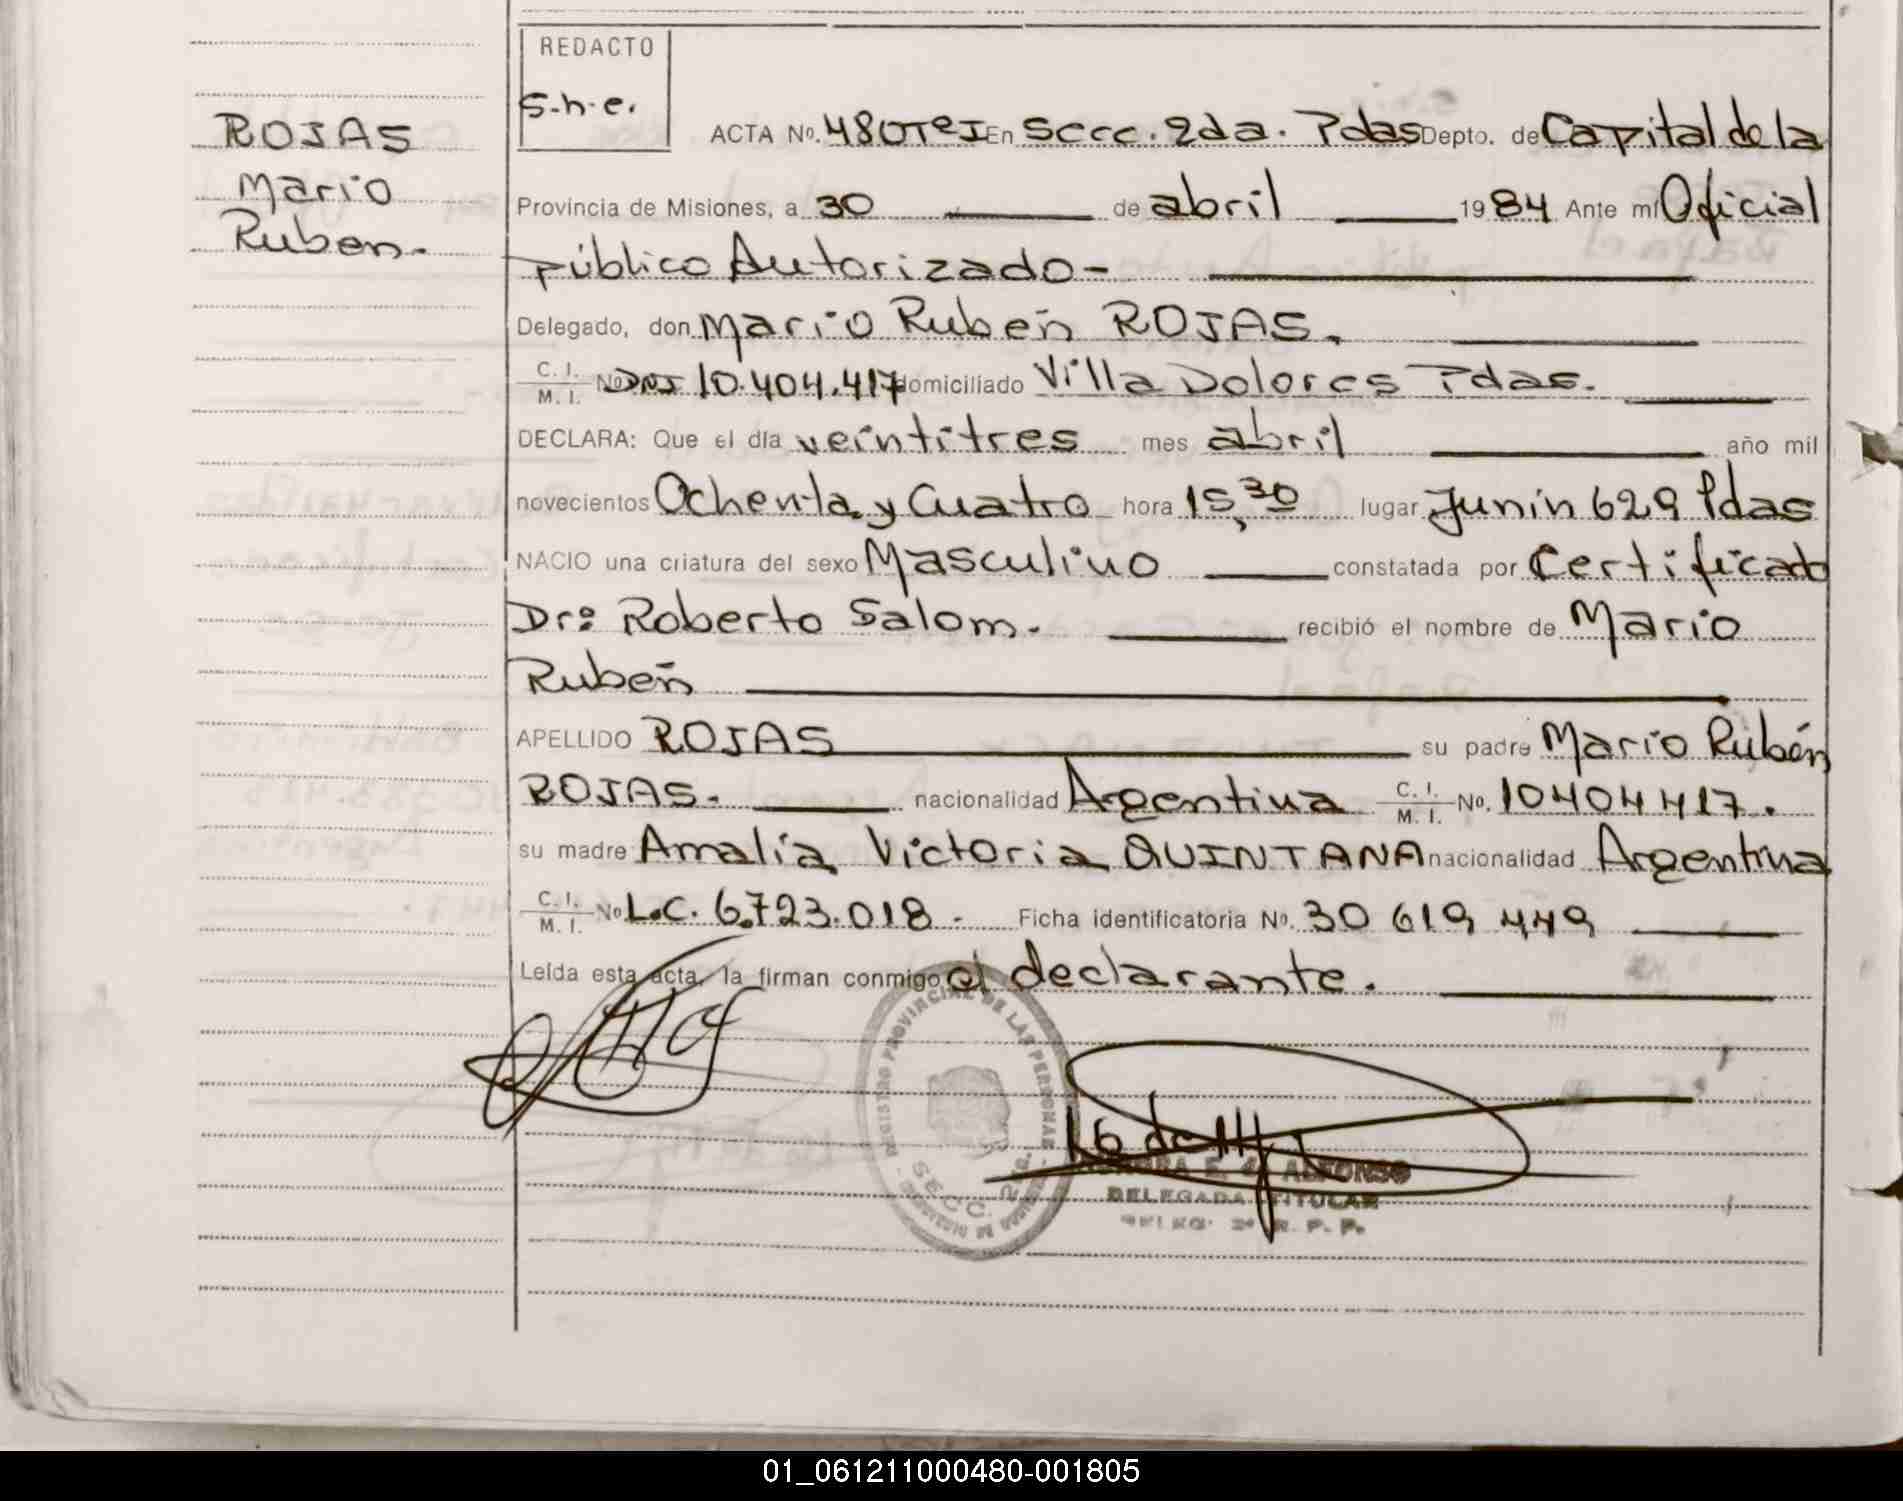 REDACTO
s.h.e.
ROJAS
Mario
Ruben.
ACTA Nº. 480 Tº I En Secc. 2da. Pdas Depto. de Capital de la
Provincia de Misiones, a 30 de abril 1984 Ante mí Oficial
público Autorizado-
Delegado, don Mario Rubén ROJAS.
C. I. M. I. Nº DNI 10.404.417 domiciliado Villa Dolores Pdas.
DECLARA: Que el día veintitres mes abril año mil
novecientos Ochenta y Cuatro hora 15,30 lugar Junín 629 Pdas
NACIO una criatura del sexo Masculino constatada por Certificado
Dr: Roberto Salom. recibió el nombre de Mario
Rubén
APELLIDO ROJAS su padre Mario Rubén
ROJAS. nacionalidad Argentina C. I. M. I. Nº. 10404417.
su madre Amalia Victoria QUINTANA nacionalidad Argentina
C. I. M. I. Nº L.C. 6.723.018 - Ficha identificatoria Nº. 30 619 449
Leída esta acta, la firman conmigo el declarante.
REGISTRO PROVINCIAL DE LAS PERSONAS
SECC. 2da.
E. ALFONSO
DELEGADA TITULAR
R. P. P.
01_061211000480-001805